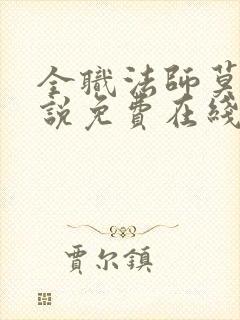 全職法師莫
說免費在綫
賈尔鎮